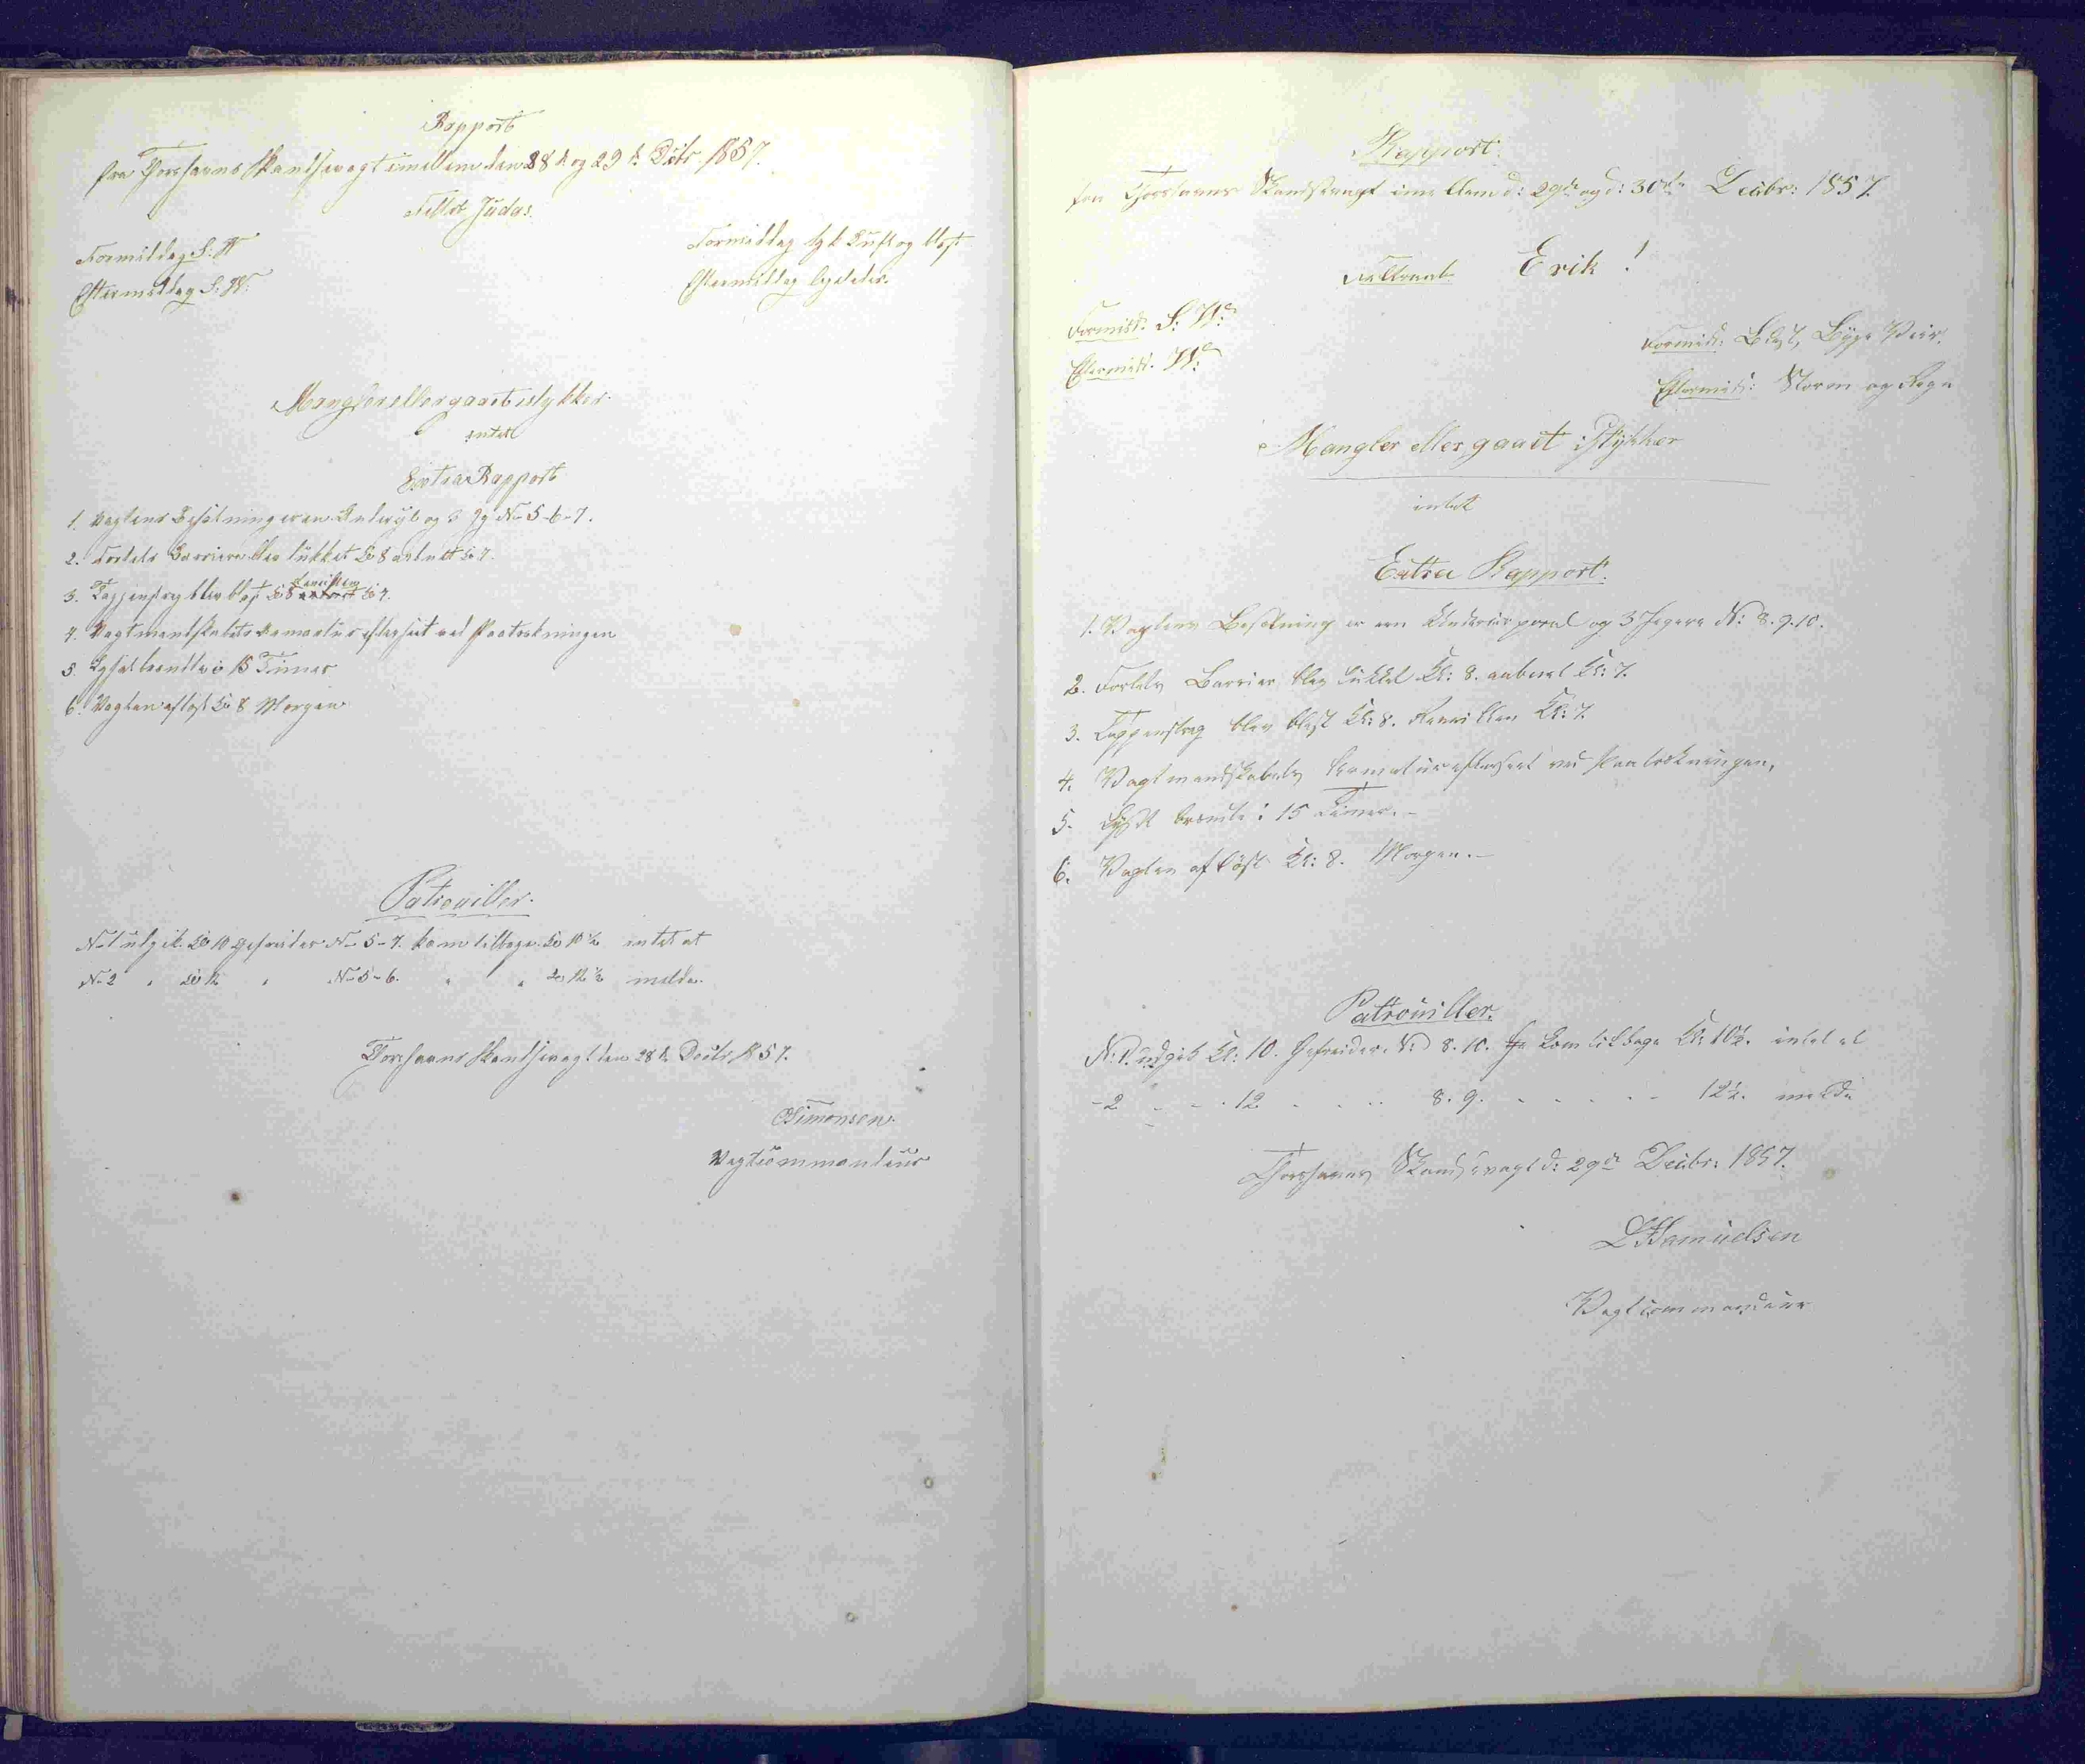 Rapport
fra Thorshavns Skandsevagt imellem den 28de og 29de Decbr 1857.
Feltr Judas.
Formiddag S: W
Eftermiddag S. W.
Formiddag tyk Luft og blæst
Eftermiddag ligeledes.
Mangler eller gaaet istykker.
intet
Extra Rapport
1. Vagtens Besætning er en Undcpl og 3 Jg No 5-6-7.
2. Fortets Barriere blev lukket Kl 8 aabnet Kl 7.
3. Tappenstreg blev blæst Kl 8 Reveillen Kl 7.
4. Vagtmandskabets Armatur efterseet ved Paatrækningen
5 Lyset brændte i 15 Timer
6. Vagten afløst Kl 8 Morgen
Patrouiller.
No 1 udgik Kl 10 Gefreider No 5-7. kom tilbage Kl 10½ intet at
No 2 " Kl 12 " No 5-6. " " Kl 12½ melde.
Thorshavns Skandsevagt den 28de Decbr 1857.
Simonsen.
Vagtcommandeur
Rapport.
fra Thorshavns Skandsevagt imellem d: 29de og d: 30te Decbr: 1857.
Feltraab Erik!
Formidd: S: W:
Eftermidd. W:
Formidd: Blæst, Byge Veir.
Eftermidd: Storm og Regn
Mangler eller gaaet i Stykker
intet
Extra Rapport.
1. Vagtens Besætning er een Undercorporal og 3 Jægere No: 8. 9. 10.
2. Fortets Barrier blev lukket Kl: 8. aabnet Kl: 7.
3. Tappenstreg blev blæst Kl: 8. Reveillen Kl: 7.
4. Vagtmandskabets Armatur efterseet ved Paatrækningen.
5. Lyset brændte i 15 Timer.-
6. Vagten afløst Kl: 8. Morgen.-
Patrouiller.
No: 1. udgik Kl: 10. Gefreider. No: 8. 10. kom tilbage Kl: 10½. intet at
- 2 - - - 12 - - - - 8. 9. - - - - - 12½. melde
Thorshavns Skandsevagt d: 29de Decbr: 1857.
Samuelsen
Vagtcommandeur